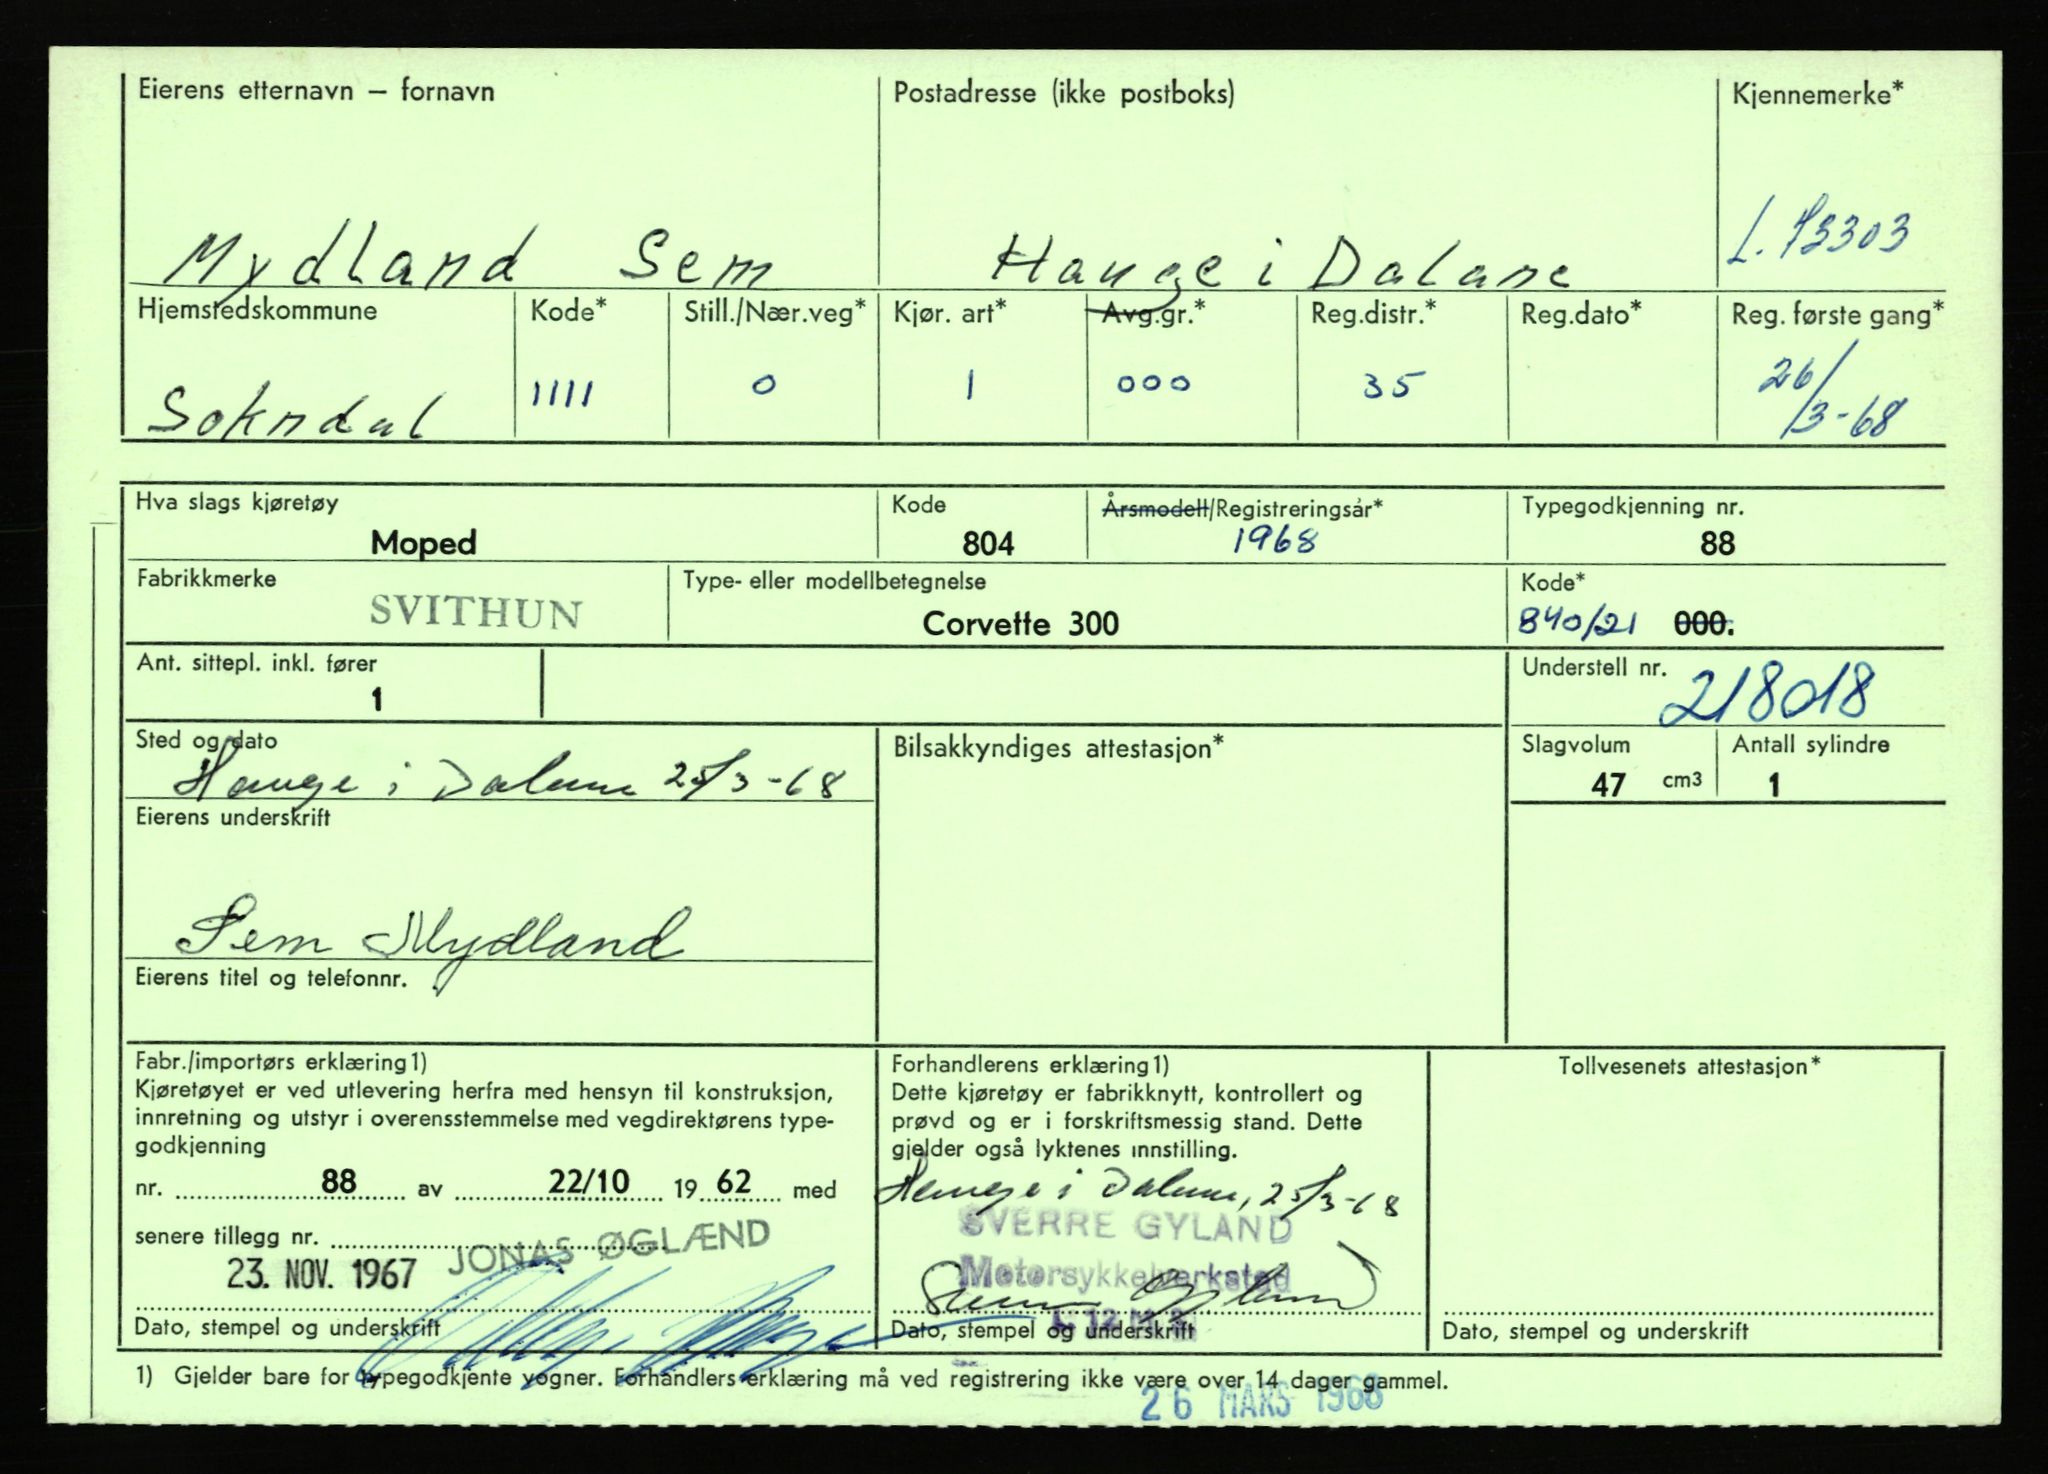 Eierens etternavn – fornavn Postadresse (ikke postboks) Kjennemerke*
Mydland Sem Hauge i Dalane L. 73303
Hjemstedskommune Kode* Still./Nær.veg* Kjør. art* Avg.gr.* Reg.distr.* Reg.dato* Reg. første gang*
Sokndal 1111 0 1 000 35 26/3-68
Hva slags kjøretøy Kode Årsmodell/Registreringsår* Typegodkjenning nr.
Moped 804 1968 88
Fabrikkmerke Type- eller modellbetegnelse Kode*
SVITHUN Corvette 300 840/21 000.
Ant. sittepl. inkl. fører Understell nr.
1 218018
Sted og dato Bilsakkyndiges attestasjon* Slagvolum Antall sylindre
Hauge i Dalane 25/3-68 47 cm3 1
Eierens underskrift
Sem Mydland
Eierens titel og telefonnr.
Fabr./importørs erklæring1)
Kjøretøyet er ved utlevering herfra med hensyn til konstruksjon,
innretning og utstyr i overensstemmelse med vegdirektørens type-
godkjenning
nr. 88 av 22/10 19 62 med
senere tillegg nr.
JONAS ØGLÆND
23. NOV. 1967
Dato, stempel og underskrift
Forhandlerens erklæring1)
Dette kjøretøy er fabrikknytt, kontrollert og
prøvd og er i forskriftsmessig stand. Dette
gjelder også lyktenes innstilling.
Hauge i Dalane, 25/3-68
SVERRE GYLAND
Motorsykkelverksted
Sverre Gyland
Dato, stempel og underskrift
Tollvesenets attestasjon*
Dato, stempel og underskrift
1) Gjelder bare for typegodkjente vogner. Forhandlers erklæring må ved registrering ikke være over 14 dager gammel.
26 MARS 1968